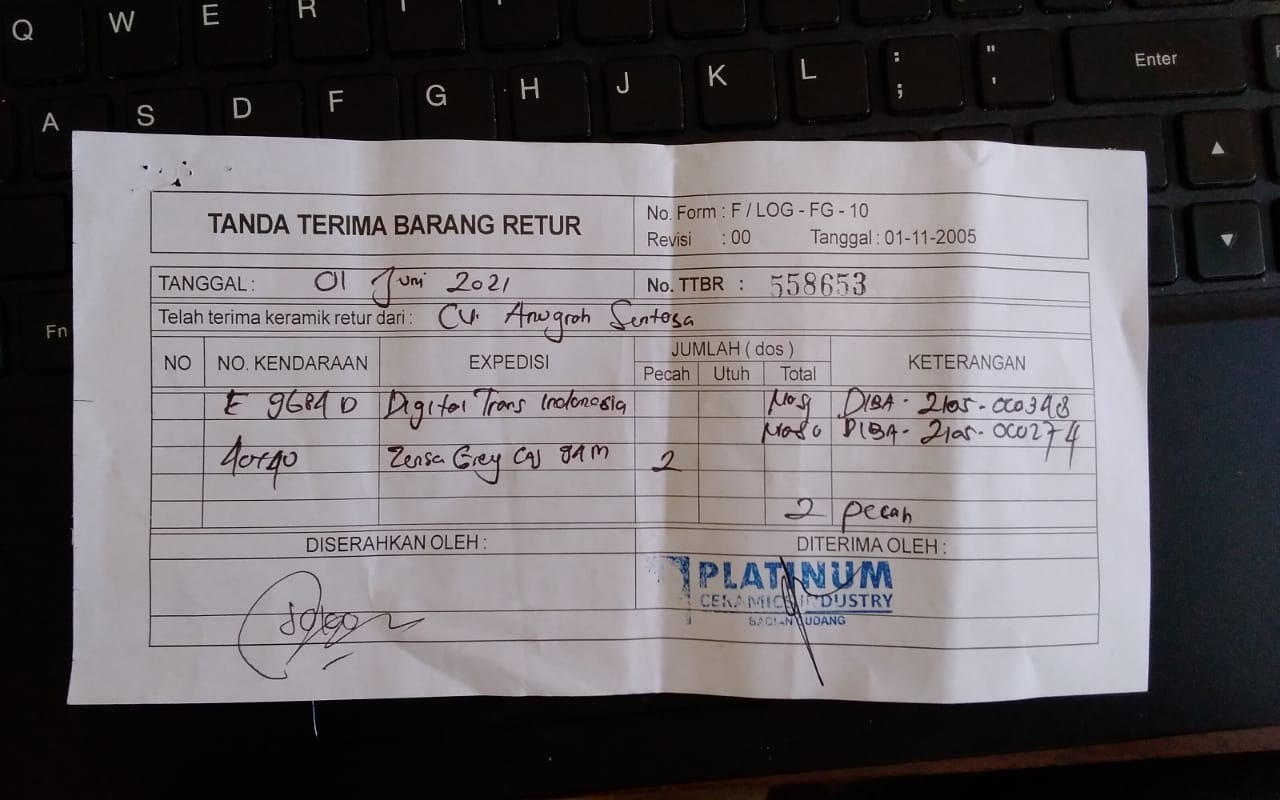 Q W E R
A S D F G H J K L : ; " ' Enter
Fn
TANDA TERIMA BARANG RETUR
No. Form : F / LOG - FG - 10
Revisi : 00 Tanggal : 01-11-2005
TANGGAL : 01 Juni 2021
No. TTBR : 558653
Telah terima keramik retur dari : CV. Anugrah Sentosa
NO NO. KENDARAAN EXPEDISI JUMLAH ( dos ) KETERANGAN
Pecah Utuh Total
E 9684 D Digital Trans Indonesia DIBA - 2105 - 000348
DIBA - 2105 - 000274
40x40 Zensa Grey 2
2 pecah
DISERAHKAN OLEH : DITERIMA OLEH :
PLATINUM
CERAMICS INDUSTRY
BAGIAN GUDANG